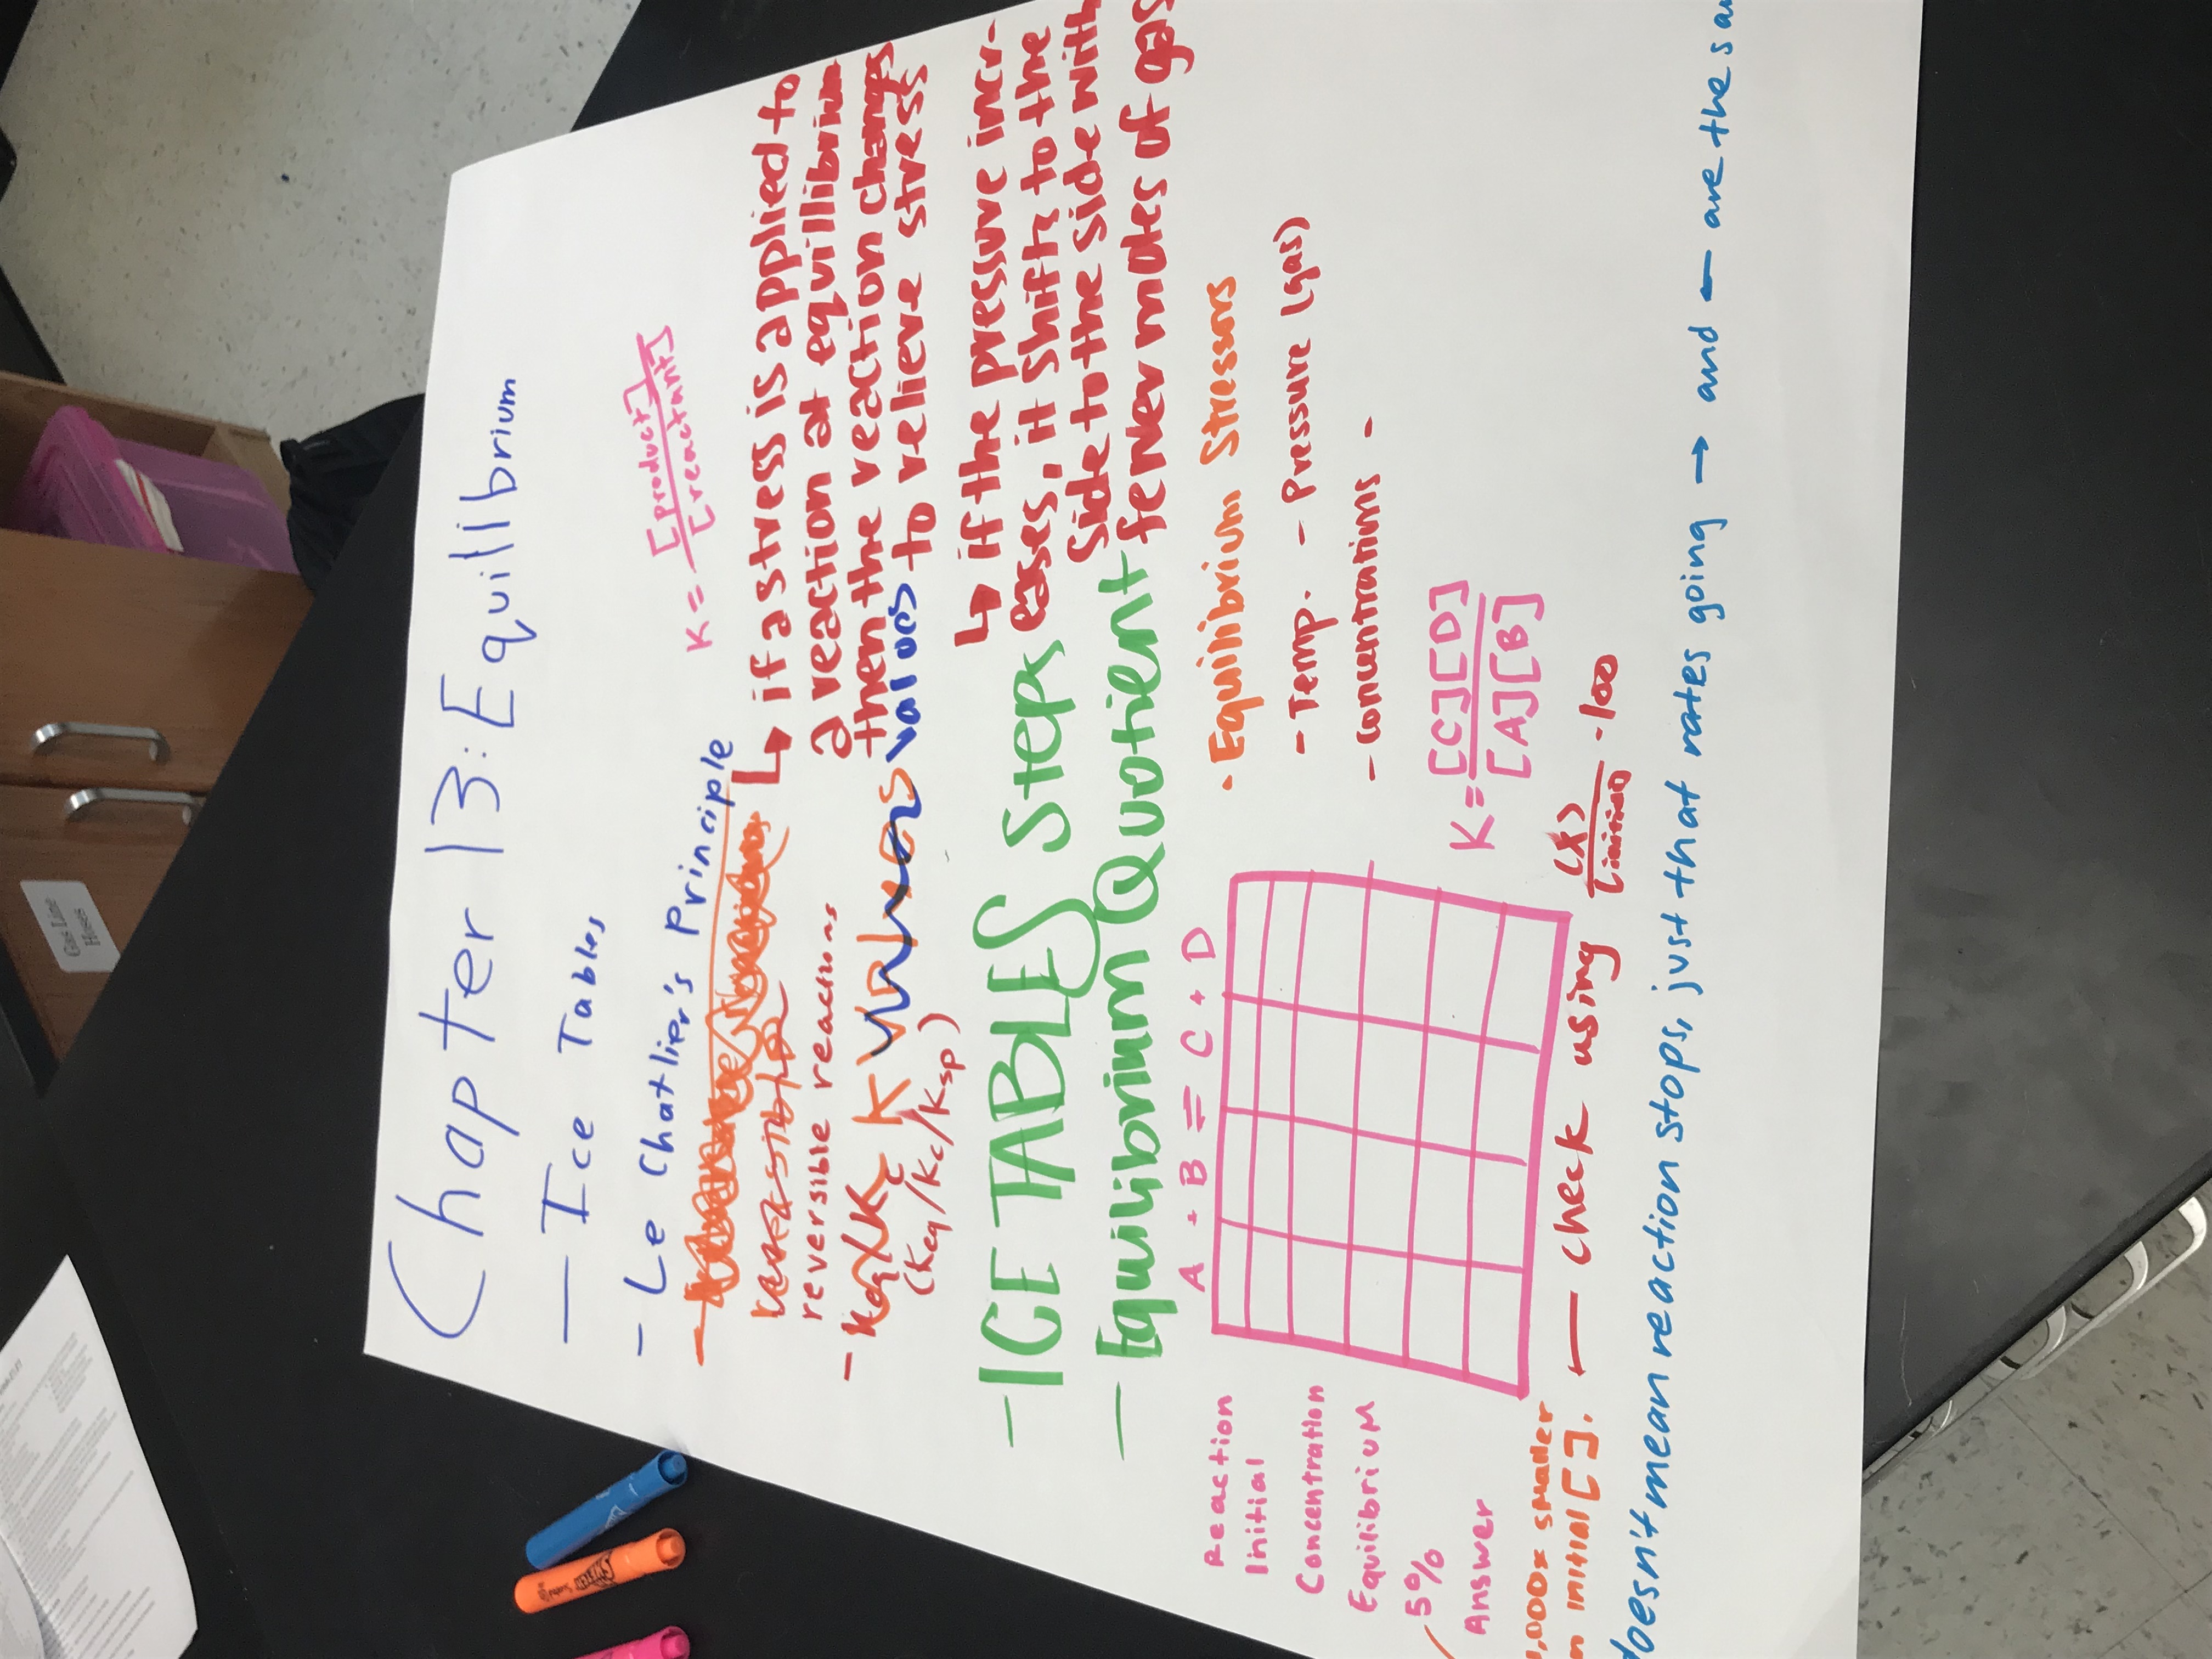 Chapter 13: Equilibrium
— Ice Tables
- Le Chatlier's Principle
K = [product]
[reactant]
↳ if a stress is applied to
a reaction at equillibrium
then the reaction changes
to relieve stress
reversible reactions
- Keq/Kc K values values
(Keq/Kc/Ksp)
↳ if the pressure incr-
eases, it shifts to the
side to the side with
fewer moles of gas
- ICE TABLES Steps
- Equilibrium Quotient
A + B = C + D
Reaction
Initial
Concentration
Equilibrium
5%
Answer
· Equilibrium Stressors
- Temp. - Pressure (gas)
- concentrations -
K = [C][D]
[A][B]
1,000x smaller
initial []. ← check using (x) · 100
[initial]
doesn't mean reaction stops, just that rates going → and ← are the
Gas Line
Hoses